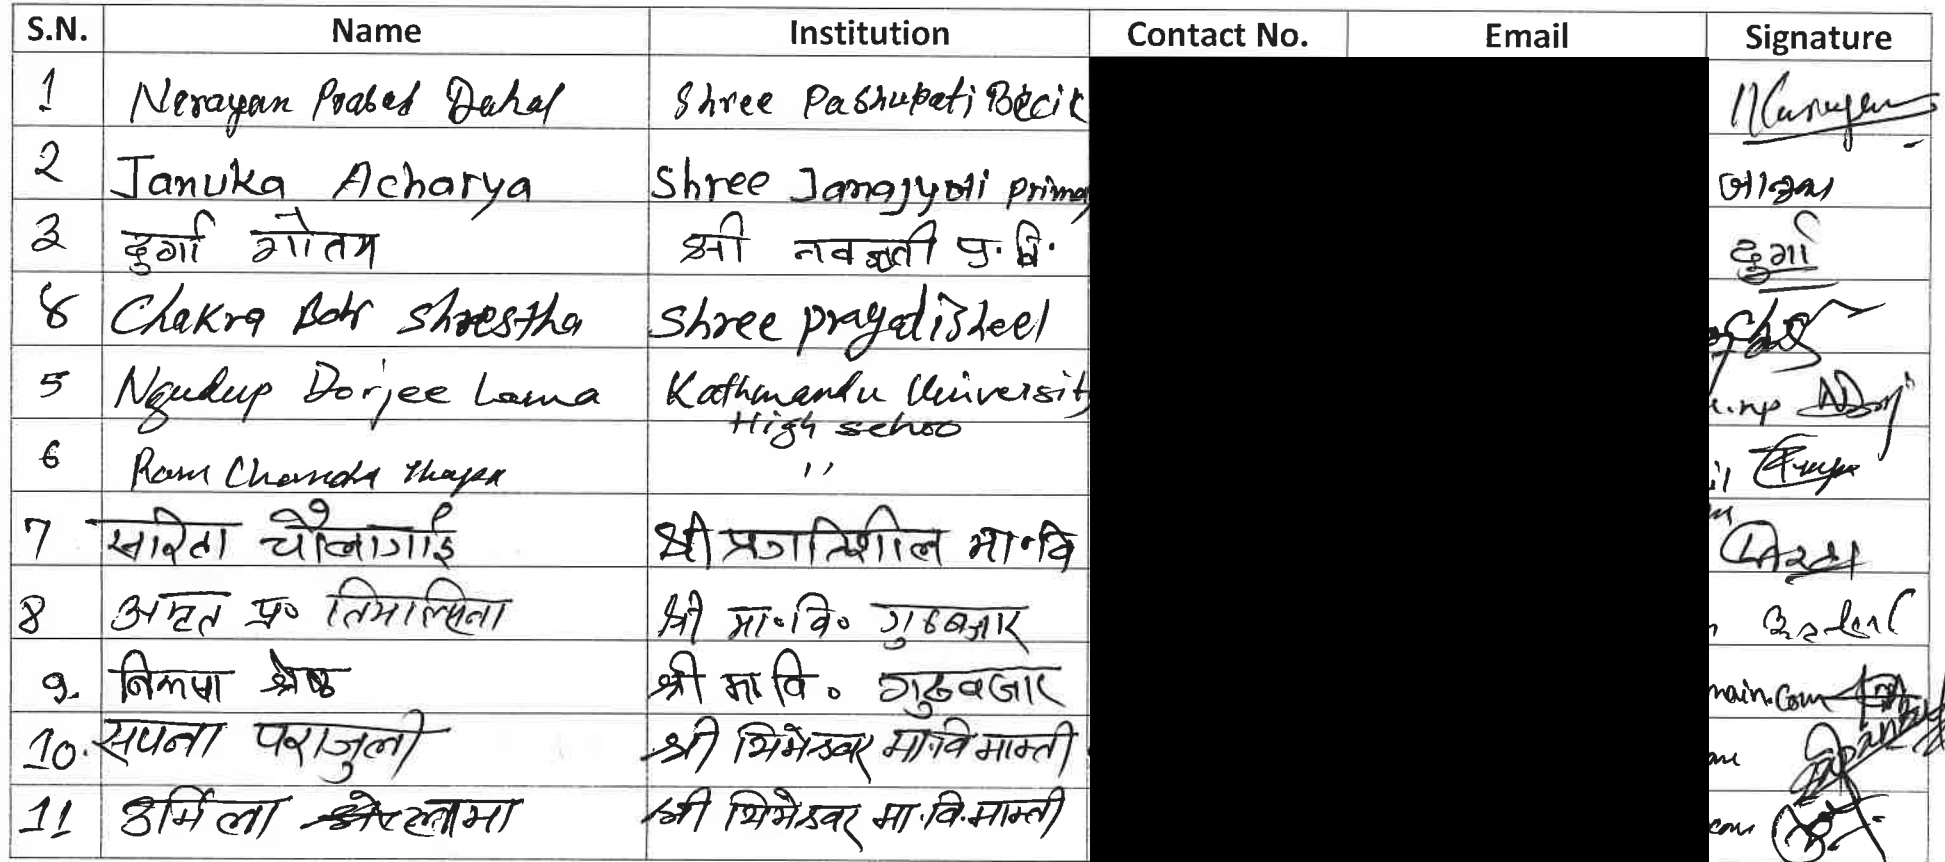 S.N. Name Institution Contact No. Email Signature
1 Narayan Prasad Dahal Shree Pashupati
2 Januka Acharya Shree Janajyoti prima
३ दुर्गा गौतम श्री प्र. वि. दुर्गा
४ Chakra Bdr Shrestha Shree pragatisheel
5 Ngudup Dorjee Lama Kathmandu Universit
High schoo
6 Ram Chandra Thapa ,,
7 सरिता चौलागाई श्री प्रगतिशील मा.वि
8 अमृत प्र० तिमल्सिना श्री मा.वि. गुडबजार
9. श्रेष्ठ श्री मा वि. गुडबजार
10. सपना पराजुली श्री भिमेश्वर मा.वि माम्ती
11 उर्मिला लामा श्री भिमेश्वर मा.वि.माम्ती